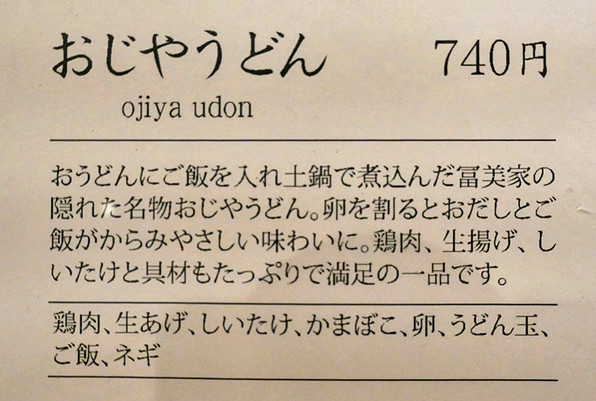 おじやうどん 740円
ojiya udon
おうどんにご飯を入れ土鍋で煮込んだ冨美家の
隠れた名物おじやうどん。卵を割るとおだしとご
飯がからみやさしい味わいに。鶏肉、生揚げ、し
いたけと具材もたっぷりで満足の一品です。
鶏肉、生あげ、しいたけ、かまぼこ、卵、うどん玉、
ご飯、ネギ